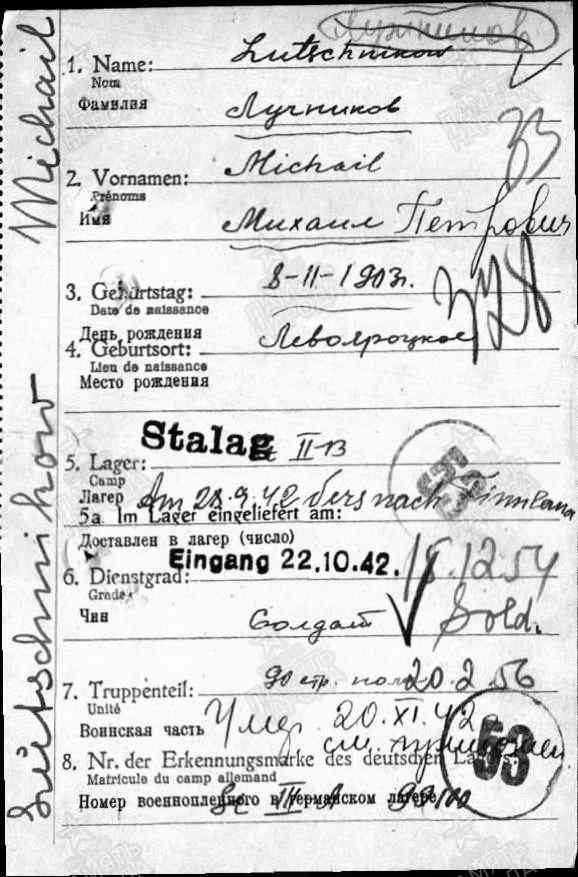 Лучников
1. Name: Lutschnikow
Nom
Фамилия Лучников
2. Vornamen: Michail
Prénoms
Имя Михаил Петрович
3. Geburtstag: 8-11-1903г.
Date de naissance
День рождения
4. Geburtsort:
Lieu de naissance
Место рождения
Stalag II-B
5. Lager:
Camp
Лагерь Am 28.9.42 Vers nach Finnland
5a. Im Lager eingeliefert am:
Доставлен в лагерь (число)
Eingang 22.10.42.
6. Dienstgrad:
Grade
Чин Солдат Sold.
7. Truppenteil: 90 стр. полк 20.2.56
Unité
Воинская часть Умер 20.XI.42г
53
8. Nr. der Erkennungsmarke des deutschen Lagers:
Matricule du camp allemand
Номер военнопленного в германском лагере
Lutschnikow Michail